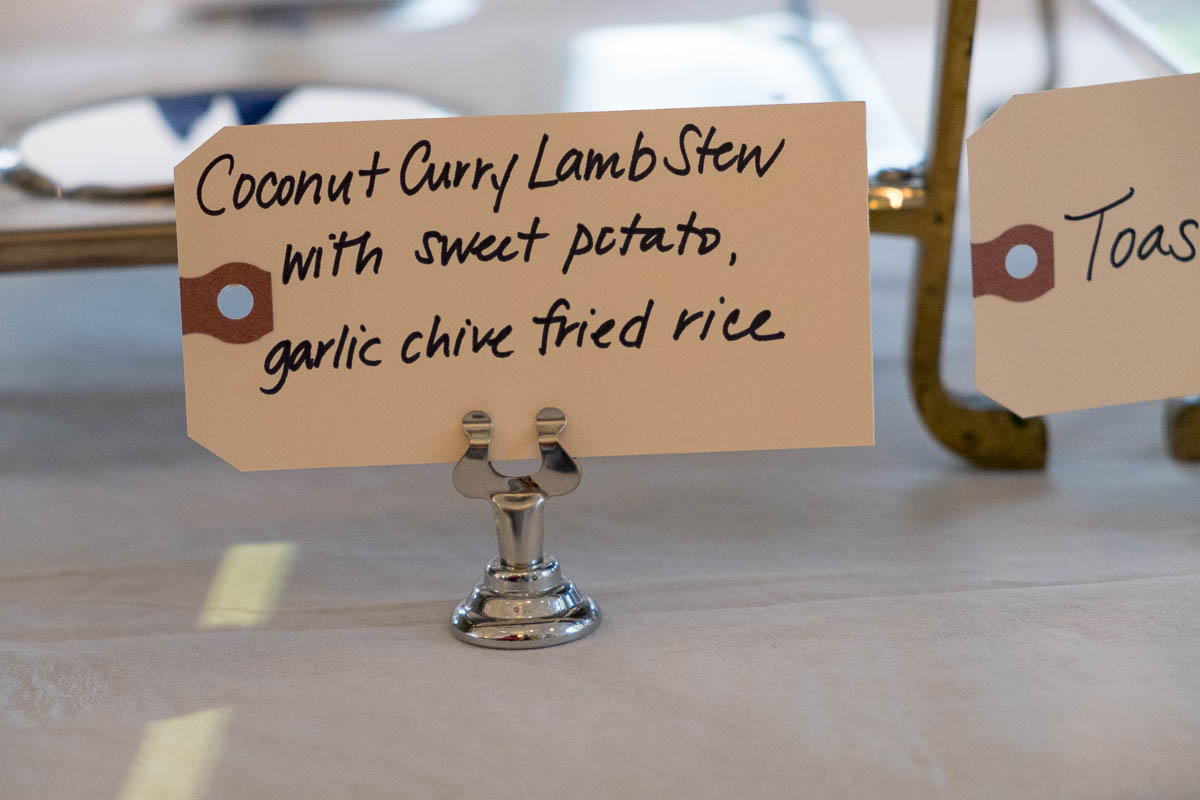 Coconut Curry Lamb Stew
with sweet potato,
garlic chive fried rice
Toas